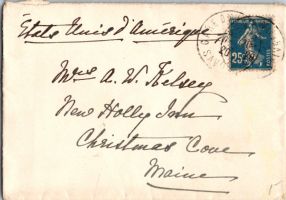 États Unis d'Amérique
25
Mrs A. W. Kelsey
New Holly Inn
Christmas Cove
Maine